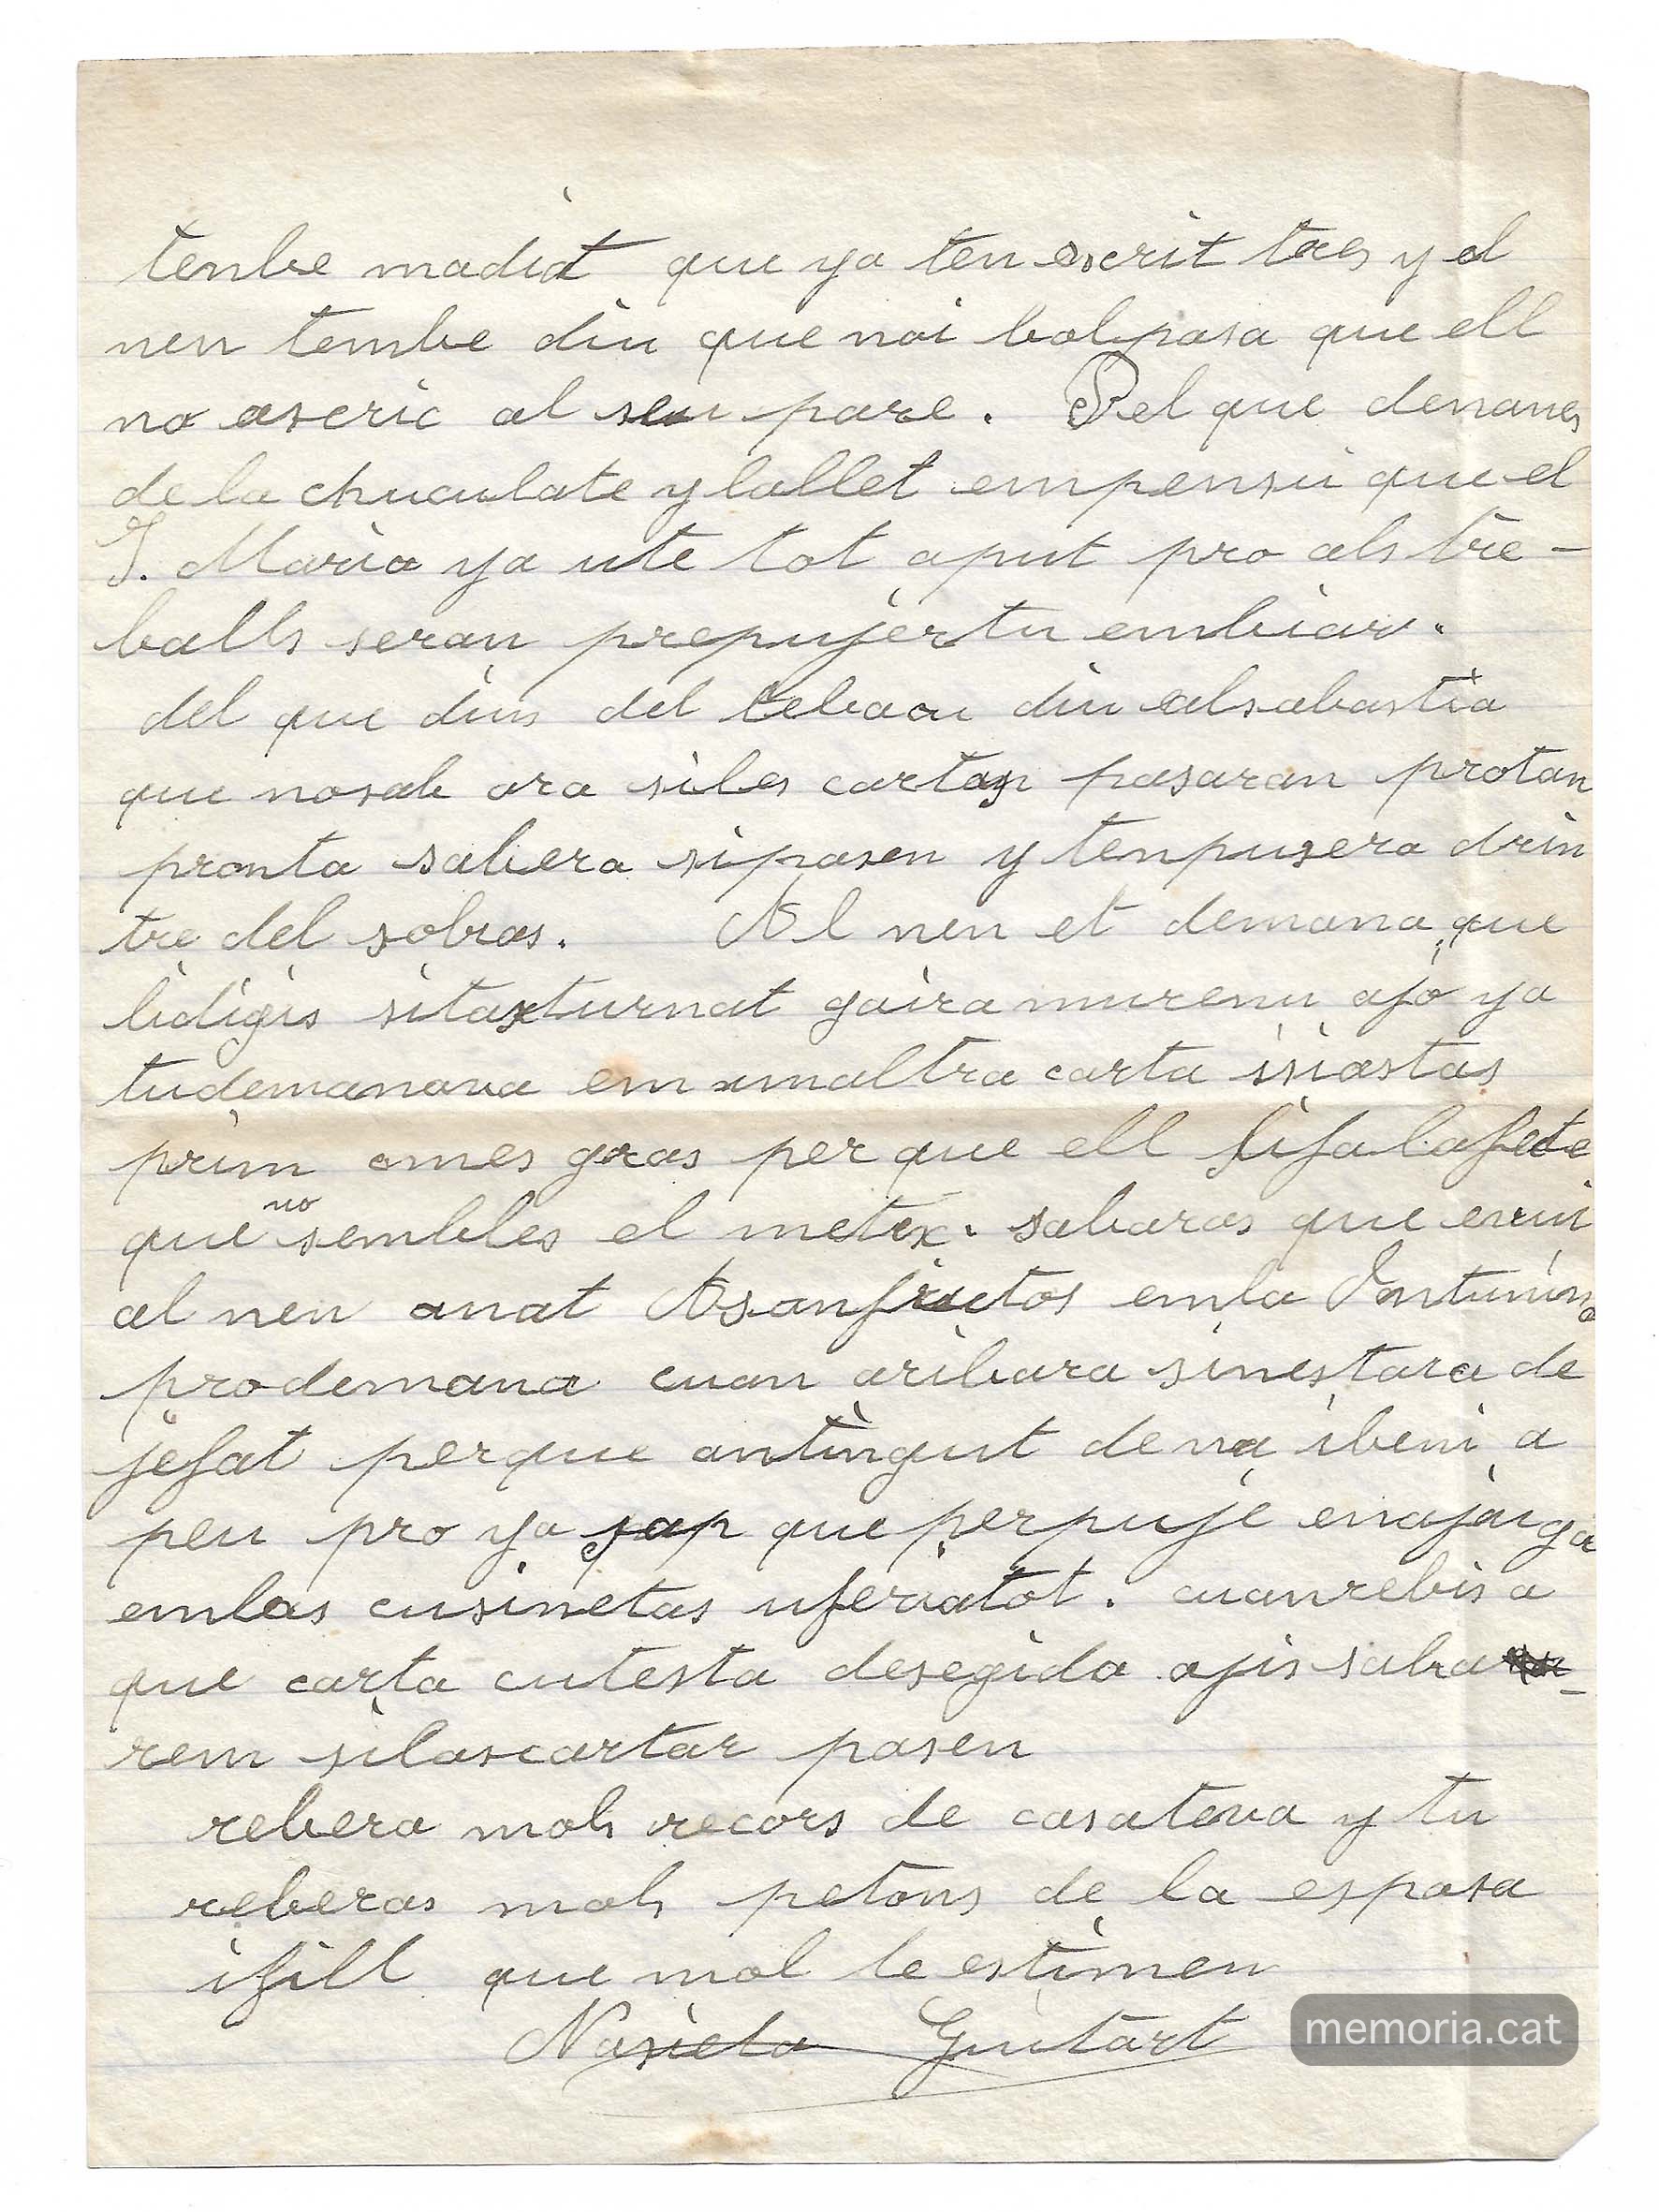 tenbe madidt que ya ten escrit tres y el
nen tembe diu que noi bol pasa que ell
no ascric al seu pare. Pel que demanes
de la chuculate y lallet em pensu que el
J. Maria ya ute tot aput pro als tre-
balls seran prepujertu embiar.
del que dius del tebacu diu alsabastia
que nosab ara siles cartas pasaran protan
pronta sabera si pasen y tenpusera drin
tre del sobras. Al nen et demana que
lidigis sitasturnat gaira murenu ajo ya
tudemanava em unaltra carta isiastas
prim omes gras per que ell sifa lafecte
que no sembles el metex. sabaras que em
al nen anat Asanfructos emla Antunina
prodemana cuan aribara sinestara de
jefat perque antingut dena ibeni a
peu pro ya sap que perpuje enajar ga
emlas cusinetas uferiatot. cuanrebis a
que carta cutesta desegida ajis saba
rem silascartar pasen
rebera mols recors de casateva y tu
reberas mols petons de la esposa
ifill que mol te estimen
Nasieta Guitart
memoria.cat